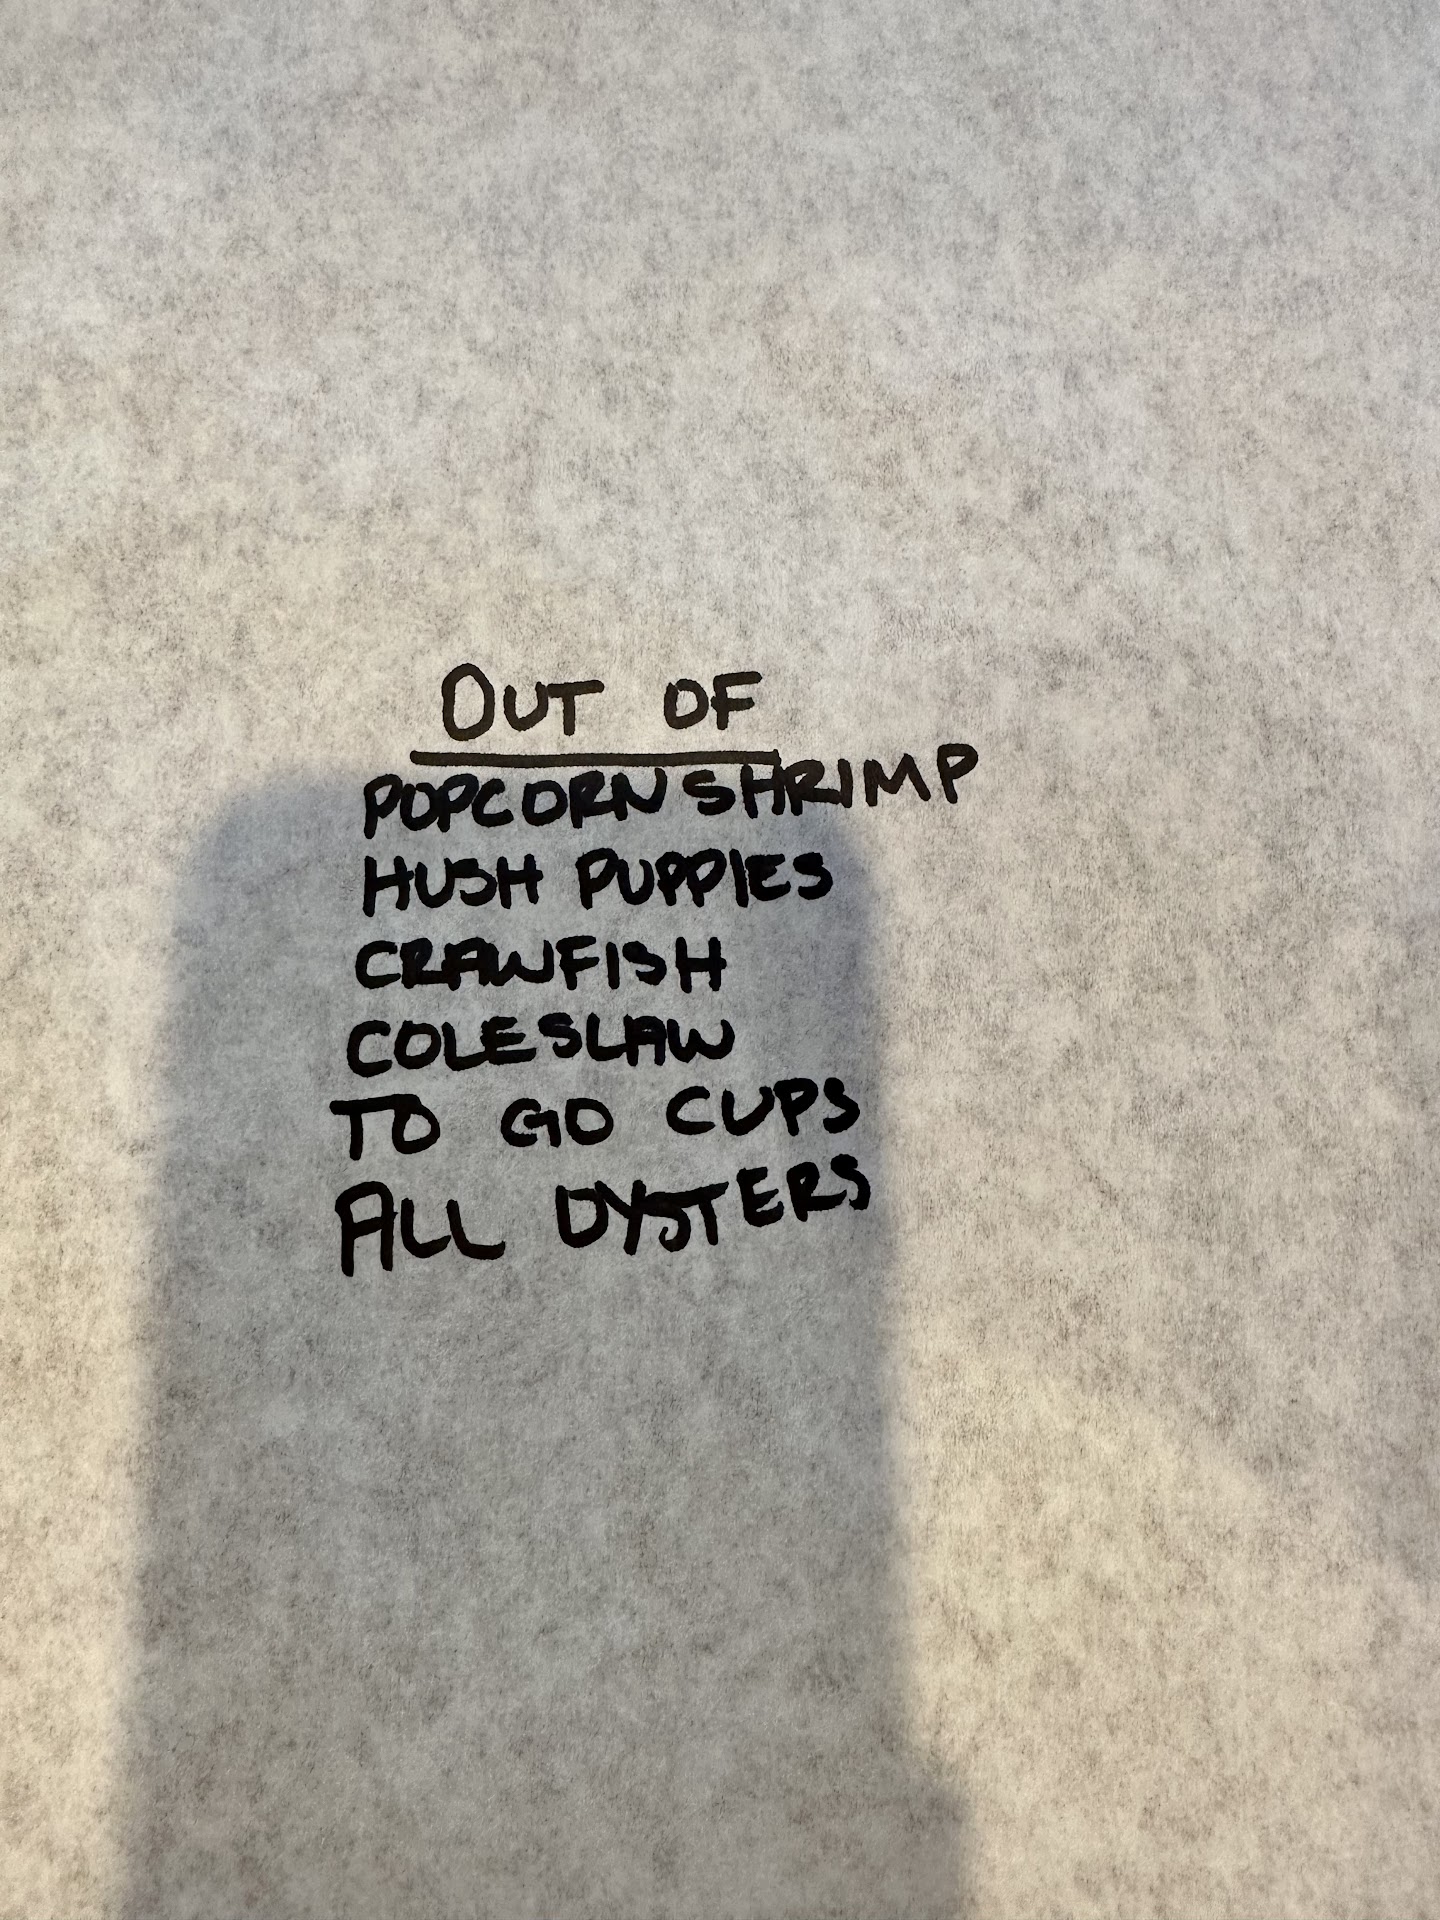 OUT OF
POPCORN SHRIMP
HUSH PUPPIES
CRAWFISH
COLESLAW
TO GO CUPS
ALL OYSTERS